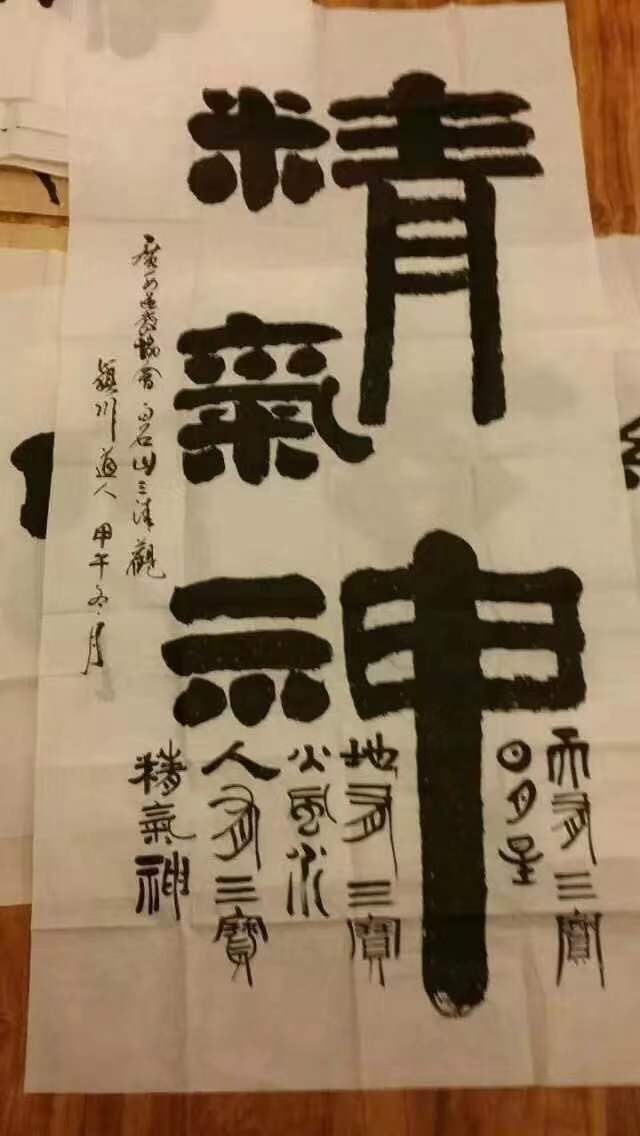 精
氣
神
天有三寶
日月星
地有三寶
火風水
人有三寶
精氣神
廣西道教協會白石山三清觀
潁川道人 甲午冬月